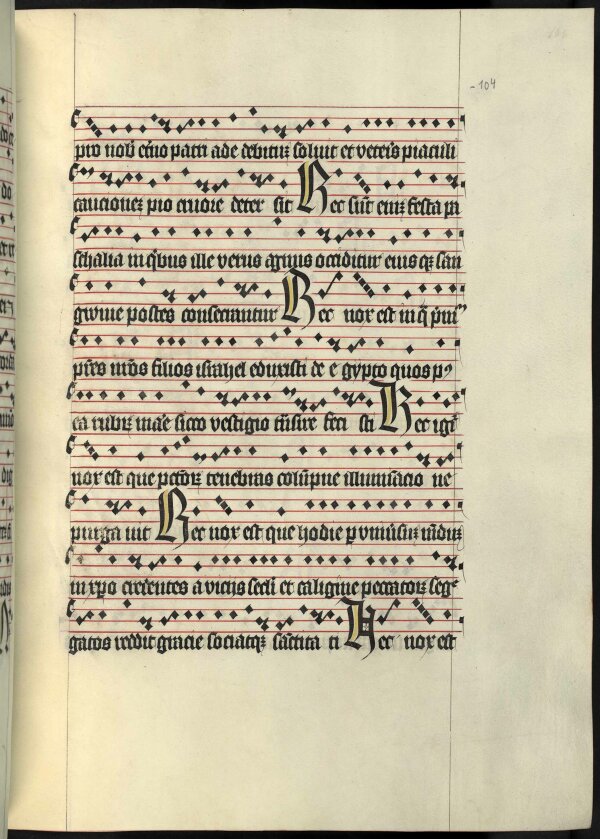 104
pro nob̃ et̃no patri ade debitũ soluit et veteris piaculi
caucionez pio cruore deter sit Hec sũt eniz festa pa
schalia in qibus ille verus agnus occiditur eius qz san
gwine postes consecrantur Hec nox est in q̃ pmũ
pr̃es nr̃os filios israhel eduxisti de e gypto quos p9
ea rubrũ mãe sicco vestigio trñsire feci sti Hec igit̃
nox est que petõrũ tenebras colũpne illuminacio ne
purga uit Hec nox est que hodie p vniũsuz mũduz
in xpo credentes a viciis secl̃i et caligine peccatorũ seg̃
gatos reddit gracie sociatqz sãctita ti Hec nox est